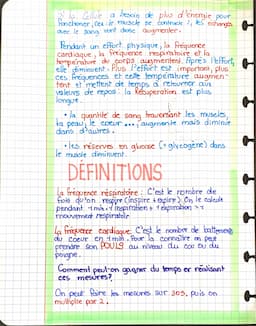 Si la Cellule a besoin de plus d'énergie pour
fonctionner, (ou le muscle se contracte), les échanges
avec le sang vont donc augmenter.
Pendant un effort physique, la fréquence
cardiaque, la fréquence respiratoire et la
température du corps augmentent. Après l'effort,
elle diminuent. Plus l'effort est important, plus
ces fréquences et cette température augmen-
tent et mettent de temps à retourner aux
valeurs de repos : la Récupération est plus
longue.
• la quantité de sang traversant les muscles,
la peau, le coeur ..., augmente mais diminue
dans d'autres.
• les réserves en glucose (=glycogène) dans
le muscle diminuent.
DÉFINITIONS
la fréquence respiratoire : C'est le nombre de
fois qu'on respire (inspire + expire). On le calcule
pendant 1 min. 1 inspiration + 1 expiration => 1
mouvement respiratoire
la fréquence cardiaque: C'est le nombre de battements
du coeur en 1 min. Pour la connaître on peut
prendre son POULS au niveau du cou ou du
poignet.
Comment peut-on gagner du temps en réalisant
ces mesures?
On peut faire les mesures sur 30s, puis on
multiplie par 2.